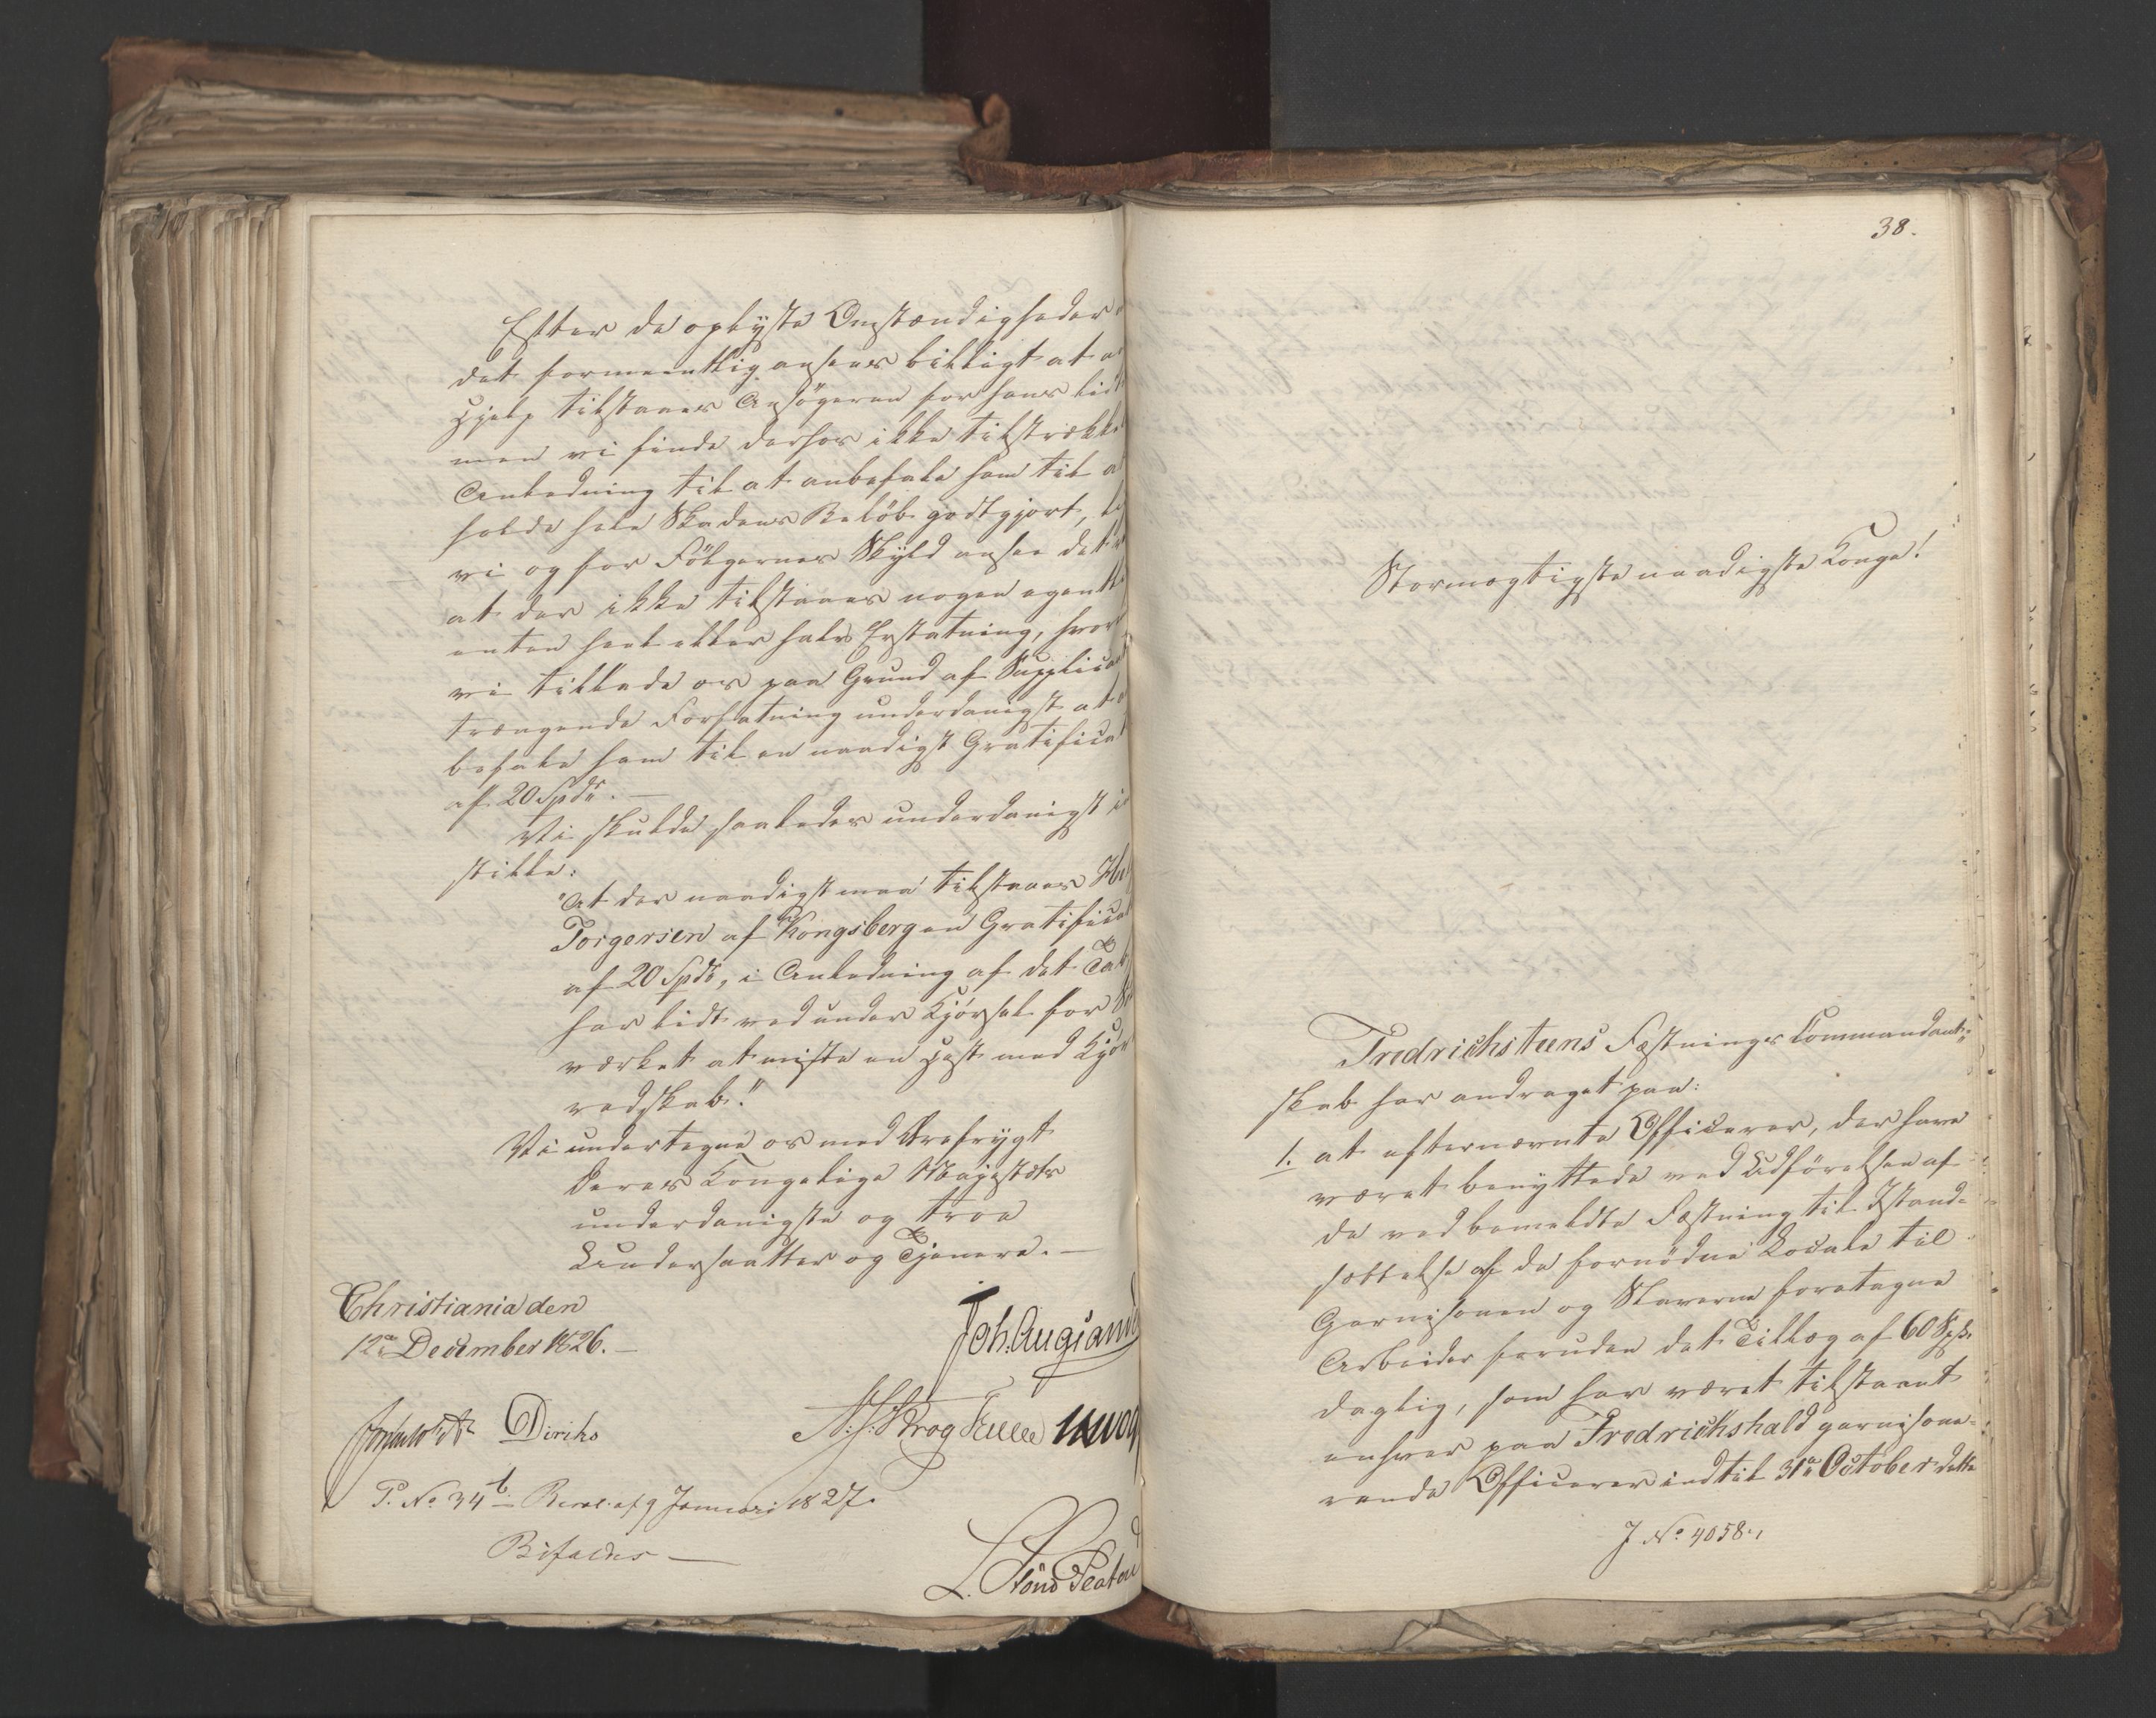 Efter de oplyste Omstændigheder
det formeentlig ansees billigt at
Hjelp tilstaaes Ansögeren for hans
men vi finde derfor ikke
Anledning til at anbefale ham til
holde hele Skadens Belöb godtgjort,
vi og for Fölgernes Skyld ansee det
at der ikke tilstaaes nogen
enten heel eller halv Erstatning,
vi tillade os paa Grund af
trængende Forfatning underdanigst at
befale ham til en naadigst
af 20 Spdr. —
Vi skulde saaledes underdanigst
stille:
"At der naadigst maa tilstaaes
Torgersen af Kongsberg en
af 20 Spdr, i Anledning af det
har lidt ved under Kjörsel for
værket at miste en Hest med
redskab."
Vi undertegne os med Ærefrygt
Deres Kongelige Majestæts
underdanigste og troe
Undersaatter og Tjenere. —
Christiania den
12te December 1826. —
Diriks
P. No 34 Resol. af 9 Januari 1827.
Bifaldes —
38.
Stormægtigste naadigste Konge!
Fredrichsteens Fæstnings Commandant-
skab har andraget paa:
1. at efternævnte Officerer, der have
været benyttede ved Udförelsen af
de ved bemeldte Fæstning til Istand-
sættelse af de fornödne Locale til
Garnisonen og Slaverne foretagne
Arbeider foruden det Tillæg af 60
daglig, som har været tilstaaet
enhver paa Fredrichshald garnisone-
rende Officerer indtil 31te October dette
J No 4058.